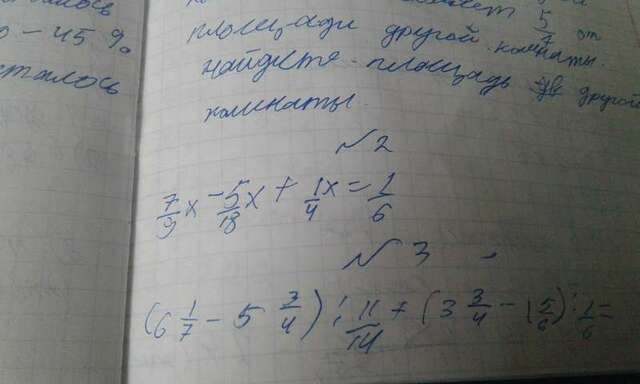 - 45 %
сталось
5/7 от
площади другой комнаты.
найдите площадь другой
комнаты.
№ 2
7/9 x - 5/18 x + 1/4 x = 1/6
№ 3
(6 1/7 - 5 3/4) : 11/14 + (3 3/4 - 1 5/6) : 1/6 =